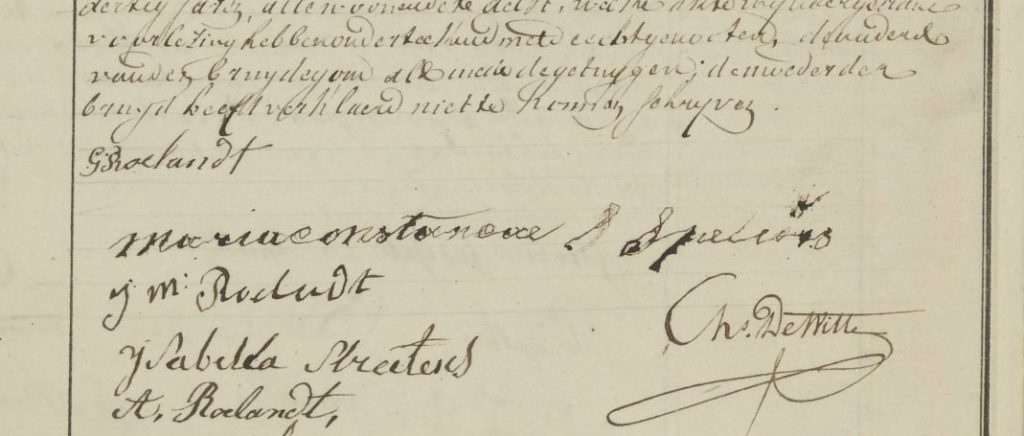 dertig jaren, alle woonende te delft, welke
voorlezing hebben onderteekend met de echtgenooten, de ouders
van den bruydegom alk mede de getuygen; de moeder der
bruyd heeft verklaerd niet te konnen schryven.
G Roelandt
maria constancae D Speliers
J m. Roelandt
Chs. De Witte
Ysabella Streitens
A, Roelandt,